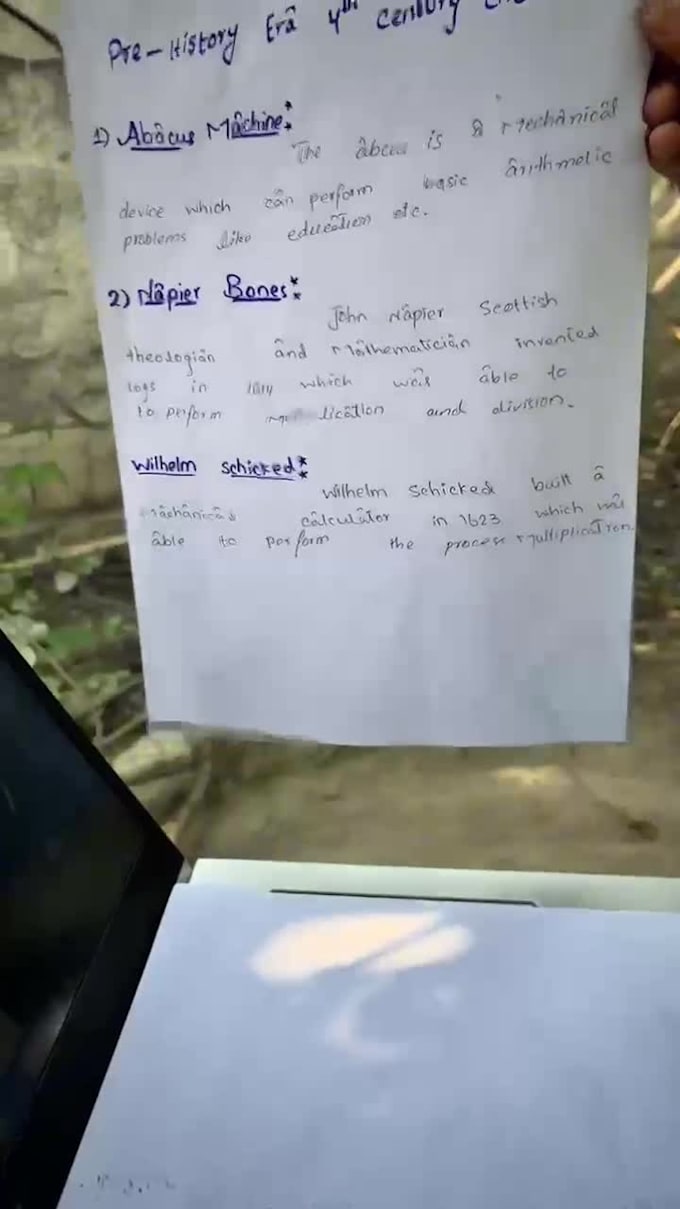 Pre-History Erâ 4th century
1) Abâcus Mâchine:
The âbcus is â Mechânicâl
device which cân perform basic ârithmetic
problems like educâtion etc.
2) Nâpier Bones:
John Nâpier Scottish
theologiân ând Mâthematiciân invented
logs in which wâs âble to
to perform and division.
Wilhelm Schicked:
Wilhelm Schicked built â
câlculâtor in 1623 which wâs
âble to perform the process multiplicâtion.